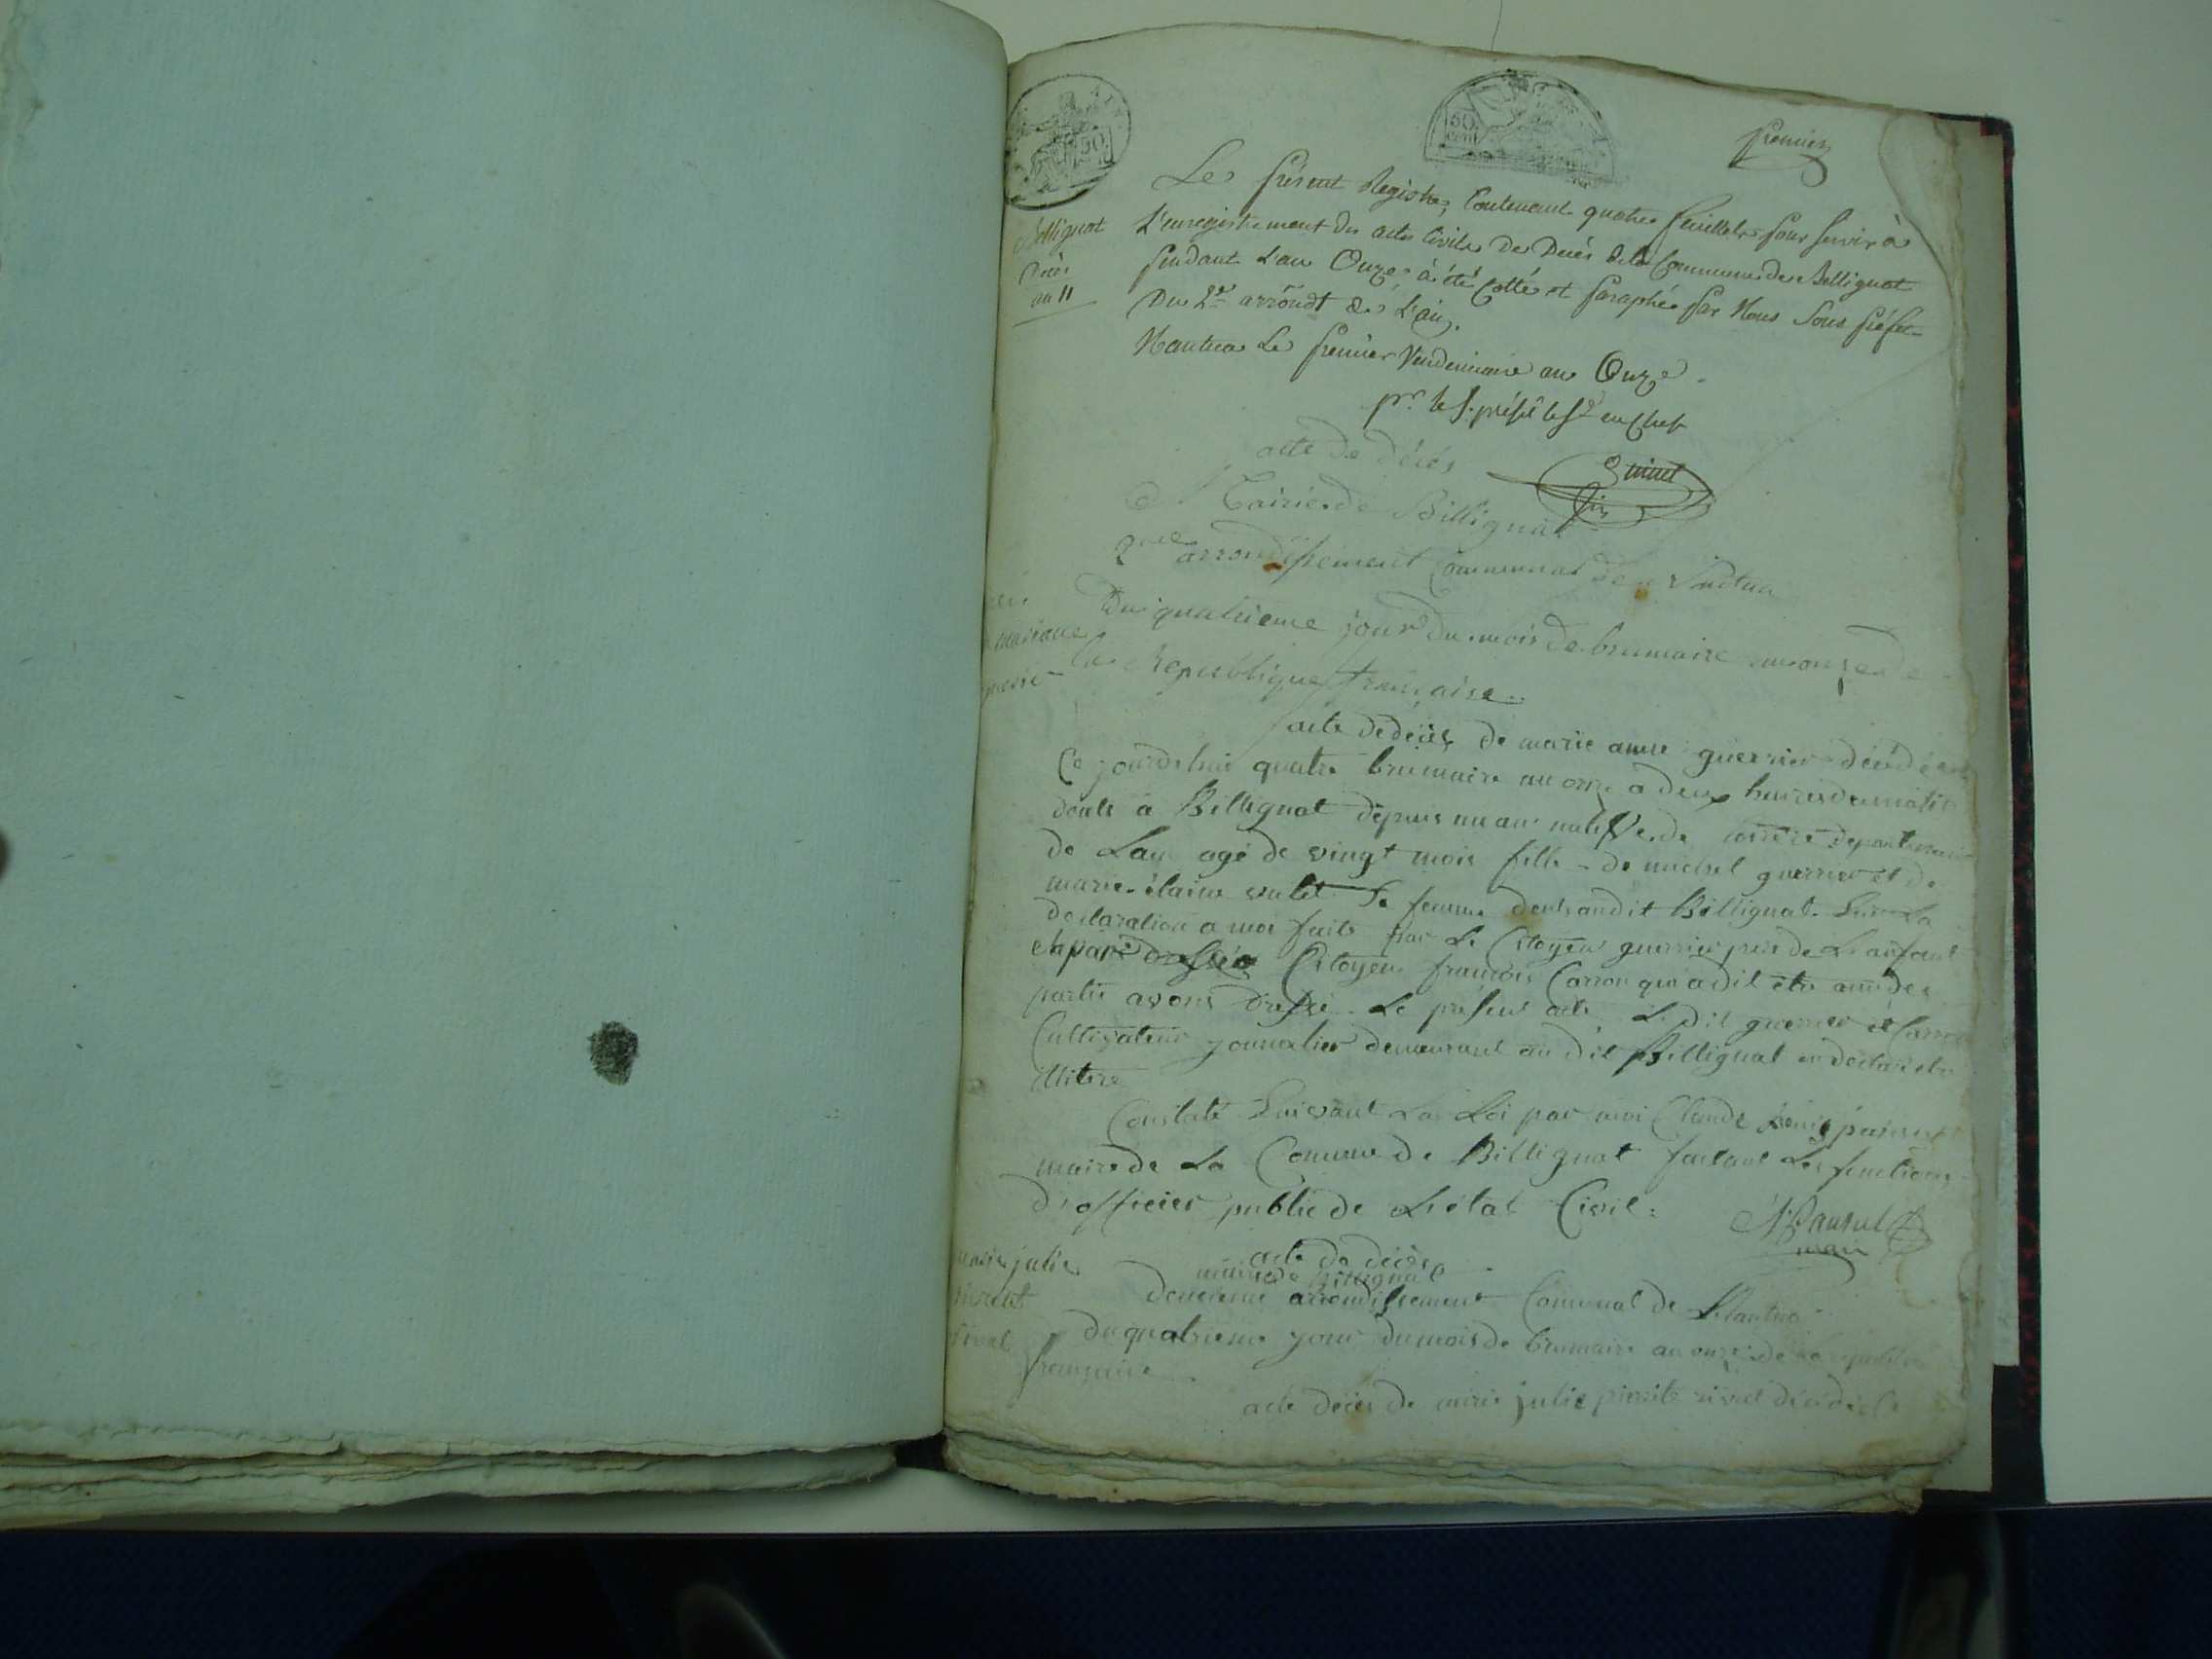 premier
50
cent
AIN
50
Bellignat
Décès
an 11
Le présent Registre, Contenant quatre feuillets pour servir à
L'enregistrement des actes Civils de Décès de la Commune de Bellignat
pendant L'an Onze, à été Cotté et paraphé par Nous Sous préfet
Du 2e arrondt de L'ain.
Nantua Le premier Vendemiaire an Onze.
pr. le S. préfet le Sre en Chef
acte de décés
Mairie de Billignat
2me arrondissement Communal de Nantua
Du quatrieme jour du mois de brumaire an onze de
la Republique française.
acte de décès de marie anne guerrier décédée
Ce jourdehui quatre brumaire an onze a deux heures du matin
à Billignat depuis un an native de departement
de Lain agé de vingt mois fille de michel guerrier et de
marie sa femme audit Billignat. Sur La
declaration a moi faite par Le Citoyen guerrier pere de L'anfant
et par Citoyen françois Carron qui a dit etre ami des
partis avons dressé Le présent acte Le dit guerrier et Carron
Cultivateur journalier demeurant au dit Billignat
illitere
Constaté Suivant La Loi par moi Claude
maire de La Comune de Billignat faisant Les fonctions
d'officier public de L'état Civil.
maire
marie julie
rival
acte de décès
mairie de Billignat
deuxieme arrondissement Comunal de Nantua
du quatrieme jour du mois de brumaire an onze de la republique
française
acte décès de marie julie rival décédé le